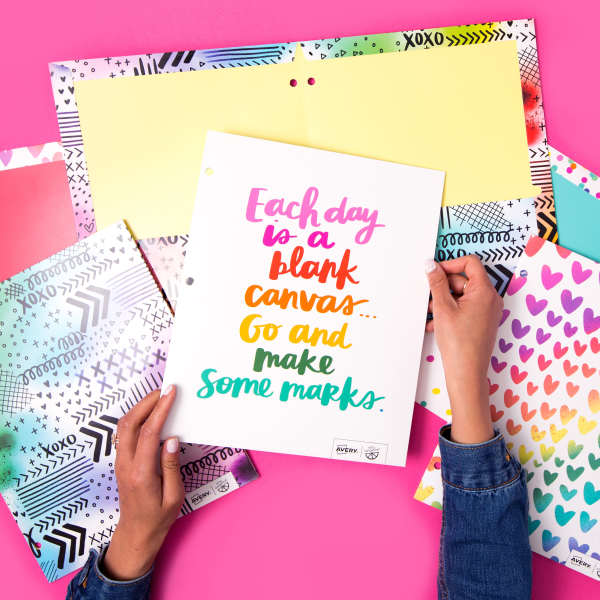 XOXO
Each day
is a
blank
canvas...
Go and
make
some marks.
AVERY
XOXO
XOXO
AVERY
AVERY